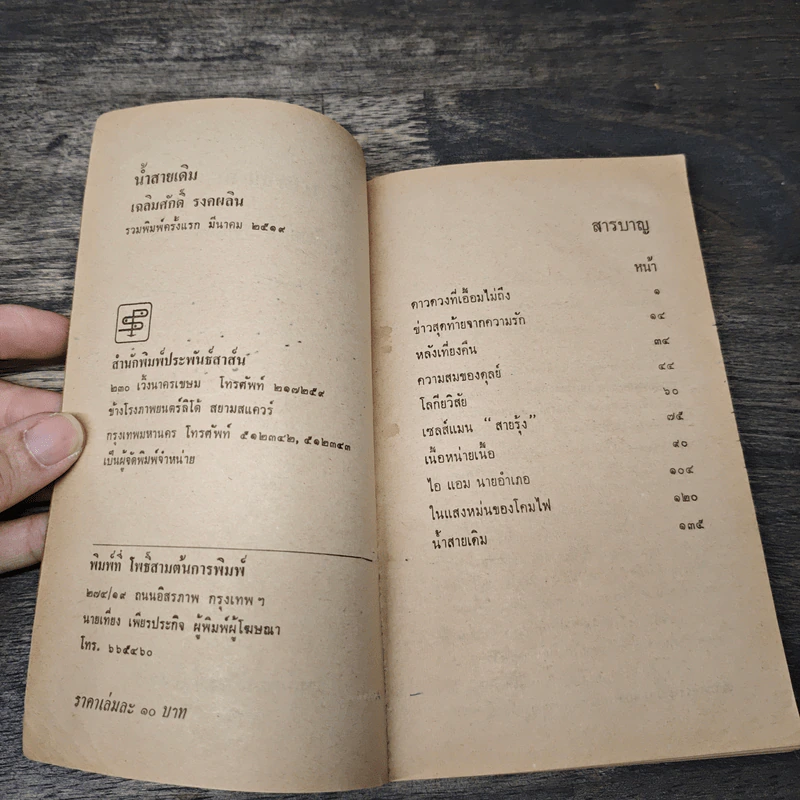 น้ำสายเดิม
เฉลิมศักดิ์ รงคผลิน
รวมพิมพ์ครั้งแรก มีนาคม ๒๕๑๙
สำนักพิมพ์ประพันธ์สาส์น
๒๓๐ เวิ้งนาครเขษม โทรศัพท์ ๒๑๗๒๕๙
ข้างโรงภาพยนตร์ลิโด้ สยามสแควร์
กรุงเทพมหานคร โทรศัพท์ ๕๑๒๓๔๒, ๕๑๒๓๔๓
เป็นผู้จัดพิมพ์จำหน่าย
พิมพ์ที่ โพธิ์สามต้นการพิมพ์
๒๗๔/๑๙ ถนนอิสรภาพ กรุงเทพ ฯ
นายเที่ยง เพียรประกิจ ผู้พิมพ์ผู้โฆษณา
โทร. ๖๖๕๔๖๐
ราคาเล่มละ ๑๐ บาท
สารบาญ
หน้า
ดาวดวงที่เอื้อมไม่ถึง ๑
ข่าวสุดท้ายจากความรัก ๑๔
หลังเที่ยงคืน ๓๔
ความสมของดุลย์ ๔๔
โลกียวิสัย ๖๐
เซลส์แมน “สายรุ้ง” ๗๕
เนื้อหน่ายเนื้อ ๙๐
ไอ แอม นายอำเภอ ๑๐๔
ในแสงหม่นของโคมไฟ ๑๒๐
น้ำสายเดิม ๑๓๕